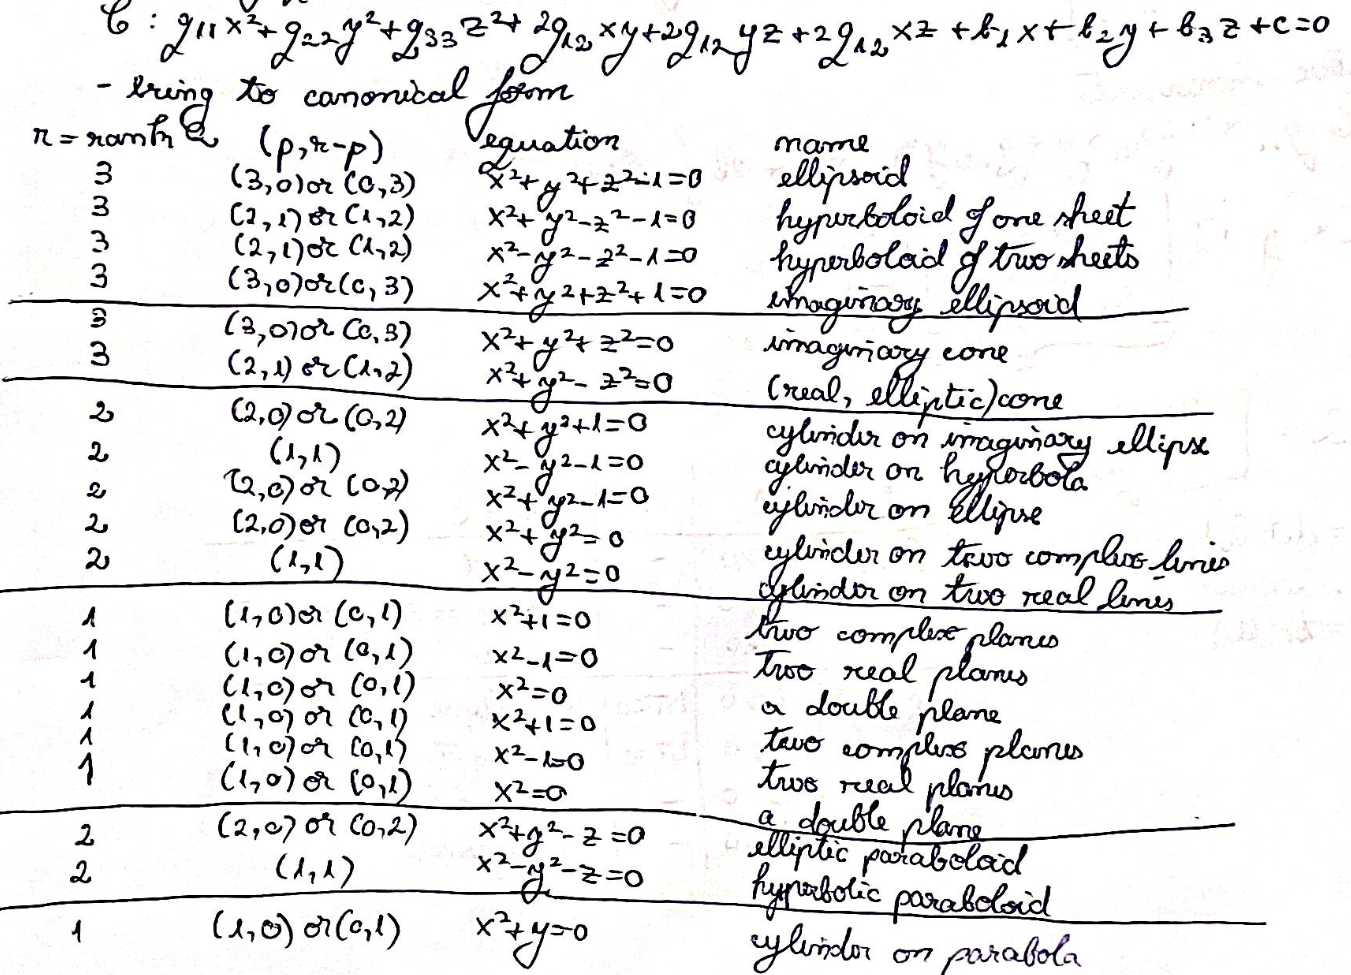 C : g₁₁x²+g₂₂y²+g₃₃z²+2g₁₂xy+2g₁₂yz+2g₁₂xz+b₁x+b₂y+b₃z+c=0
- bring to canonical form
r=rank Q (p,r-p) equation name
3 (3,0) or (0,3) x²+y²+z²-1=0 ellipsoid
3 (2,1) or (1,2) x²+y²-z²-1=0 hyperboloid of one sheet
3 (2,1) or (1,2) x²-y²-z²-1=0 hyperboloid of two sheets
3 (3,0) or (0,3) x²+y²+z²+1=0 imaginary ellipsoid
3 (3,0) or (0,3) x²+y²+z²=0 imaginary cone
3 (2,1) or (1,2) x²+y²-z²=0 (real, elliptic) cone
2 (2,0) or (0,2) x²+y²+1=0 cylinder on imaginary ellipse
2 (1,1) x²-y²-1=0 cylinder on hyperbola
2 (2,0) or (0,2) x²+y²-1=0 cylinder on ellipse
2 (2,0) or (0,2) x²+y²=0 cylinder on two complex lines
2 (1,1) x²-y²=0 cylinder on two real lines
1 (1,0) or (0,1) x²+1=0 two complex planes
1 (1,0) or (0,1) x²-1=0 two real planes
1 (1,0) or (0,1) x²=0 a double plane
1 (1,0) or (0,1) x²+1=0 two complex planes
1 (1,0) or (0,1) x²-1=0 two real planes
1 (1,0) or (0,1) x²=0 a double plane
2 (2,0) or (0,2) x²+y²-z=0 elliptic paraboloid
2 (1,1) x²-y²-z=0 hyperbolic paraboloid
1 (1,0) or (0,1) x²+y=0 cylinder on parabola